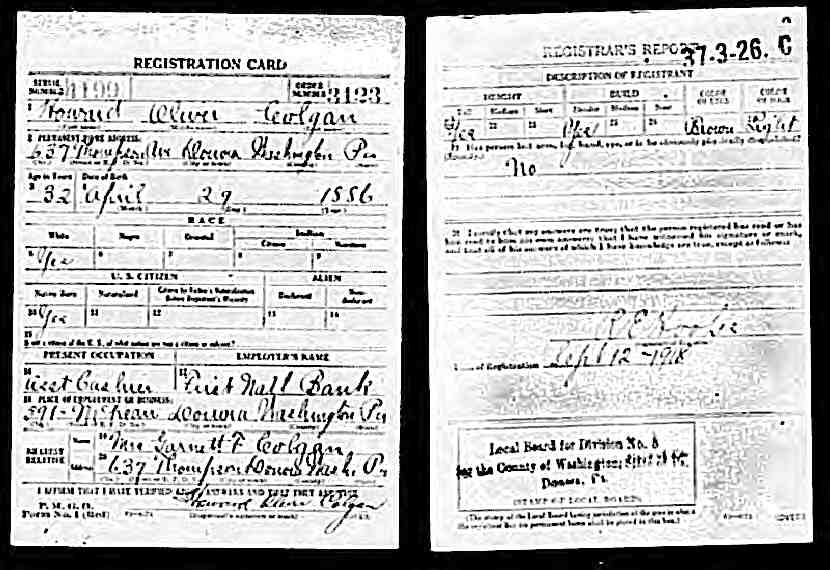 REGISTRATION CARD
SERIAL NUMBER 1199 ORDER NUMBER 3123
1 Howard Oliver Colgan
2 PERMANENT HOME ADDRESS:
637 Thompson Av Donora Washington Pa
Age in Years Date of Birth
3 32 4 April 29 1886
(Month.) (Day.) (Year.)
RACE
White Negro Oriental Indian
Citizen Noncitizen
5 Yes 6 7 8 9
U. S. CITIZEN ALIEN
Native Born Naturalized Citizen by Father's Naturalization Before Registrant's Majority Declarant Non-declarant
10 Yes 11 12 13 14
15
If not a citizen of the U. S., of what nation are you a citizen or subject?
PRESENT OCCUPATION EMPLOYER'S NAME
16 Asst Cashier 17 First Natl Bank
18 PLACE OF EMPLOYMENT OR BUSINESS:
McKean Donora Washington Pa
NEAREST RELATIVE Name 19 Mrs Garnett F Colgan
Address 20 637 Thompson Donora Wash Pa
I AFFIRM THAT I HAVE VERIFIED ABOVE ANSWERS AND THAT THEY ARE TRUE
P. M. G. O.
Form No. 1 (Red) Howard Oliver Colgan
(Registrant's signature or mark)
REGISTRAR'S REPORT 37-3-26. C
DESCRIPTION OF REGISTRANT
HEIGHT BUILD COLOR OF EYES COLOR OF HAIR
Tall Medium Short Slender Medium Stout
Yes 22 23 Yes 25 26 Brown Light
29 Has person lost arm, leg, hand, eye, or is he obviously physically disqualified?
(Specify.)
No
30 I certify that my answers are true; that the person registered has read or has
had read to him his own answers; that I have witnessed his signature or mark,
and that all of his answers of which I have knowledge are true, except as follows:
Date of Registration Sept 12-1918
Local Board for Division No. 8
for the County of Washington, State of Pa.
Donora, Pa.
(STAMP OF LOCAL BOARD)
(The stamp of the Local Board having jurisdiction of the area in which
the registrant has his permanent home shall be placed in this box.)